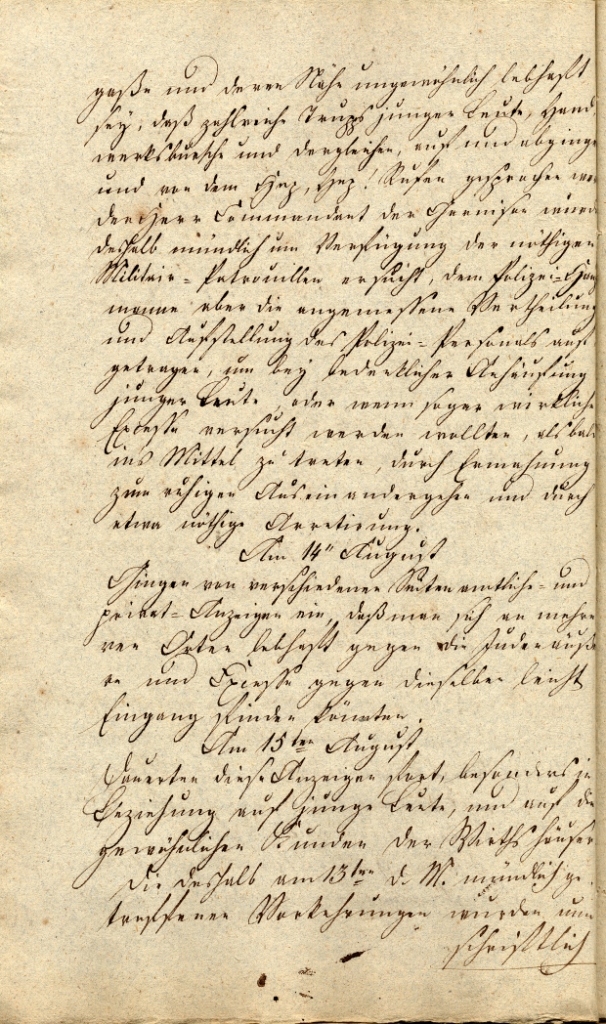 gaße und deren Nähe ungewöhnlich lebhaft
sey, daß zahlreiche Trupps junger Leute, Hand
werksbursche und dergleichen, auf und abginge
und von dem Hep, Hep! Rufen gesprochen wer
der Herr Commandant der Garnison wurde
deshalb mündlich um Verfügung der nöthigen
Militair-Patrouillen ersucht, dem Polizei-Hau
manne aber die angemessene Vertheilung
und Aufstellung des Polizei-Personals auf
getragen, um bey bedenklicher Anhäufung
junger Leute, oder wenn sogar wirkliche
Excesse versucht werden wollten, alsbald
ins Mittel zu treten, durch Ermahnung
zum ruhigen Auseinandergehen und durch
etwa nöthige Arretirung.
Am 14n August
Gingen von verschiedenen Seiten amtliche- und
privat-Anzeigen ein, daß man sich an mehre
ren Orten lebhaft gegen die Juden äuße
re und Excesse gegen dieselben leicht
Eingang finden könnten.
Am 15ten August
Dauerten diese Anzeigen fort, besonders in
Beziehung auf junge Leute, und auf die
gewöhnlichen Kunden der Wirthshäuser
Die deshalb am 13ten d. M. mündlich ge
troffenen Vorkehrungen wurden nun
schriftlich